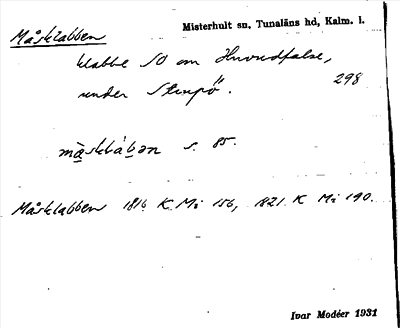 Misterhult sn, Tunaläns hd, Kalm. l.
Måsklabben
klabbe SO om Huvudfalse,
under Strupö". 298
måsklàban s. 85.
Måsklabben 1816 K Mi 156, 1821 K Mi 190.
Ivar Modéer 1931